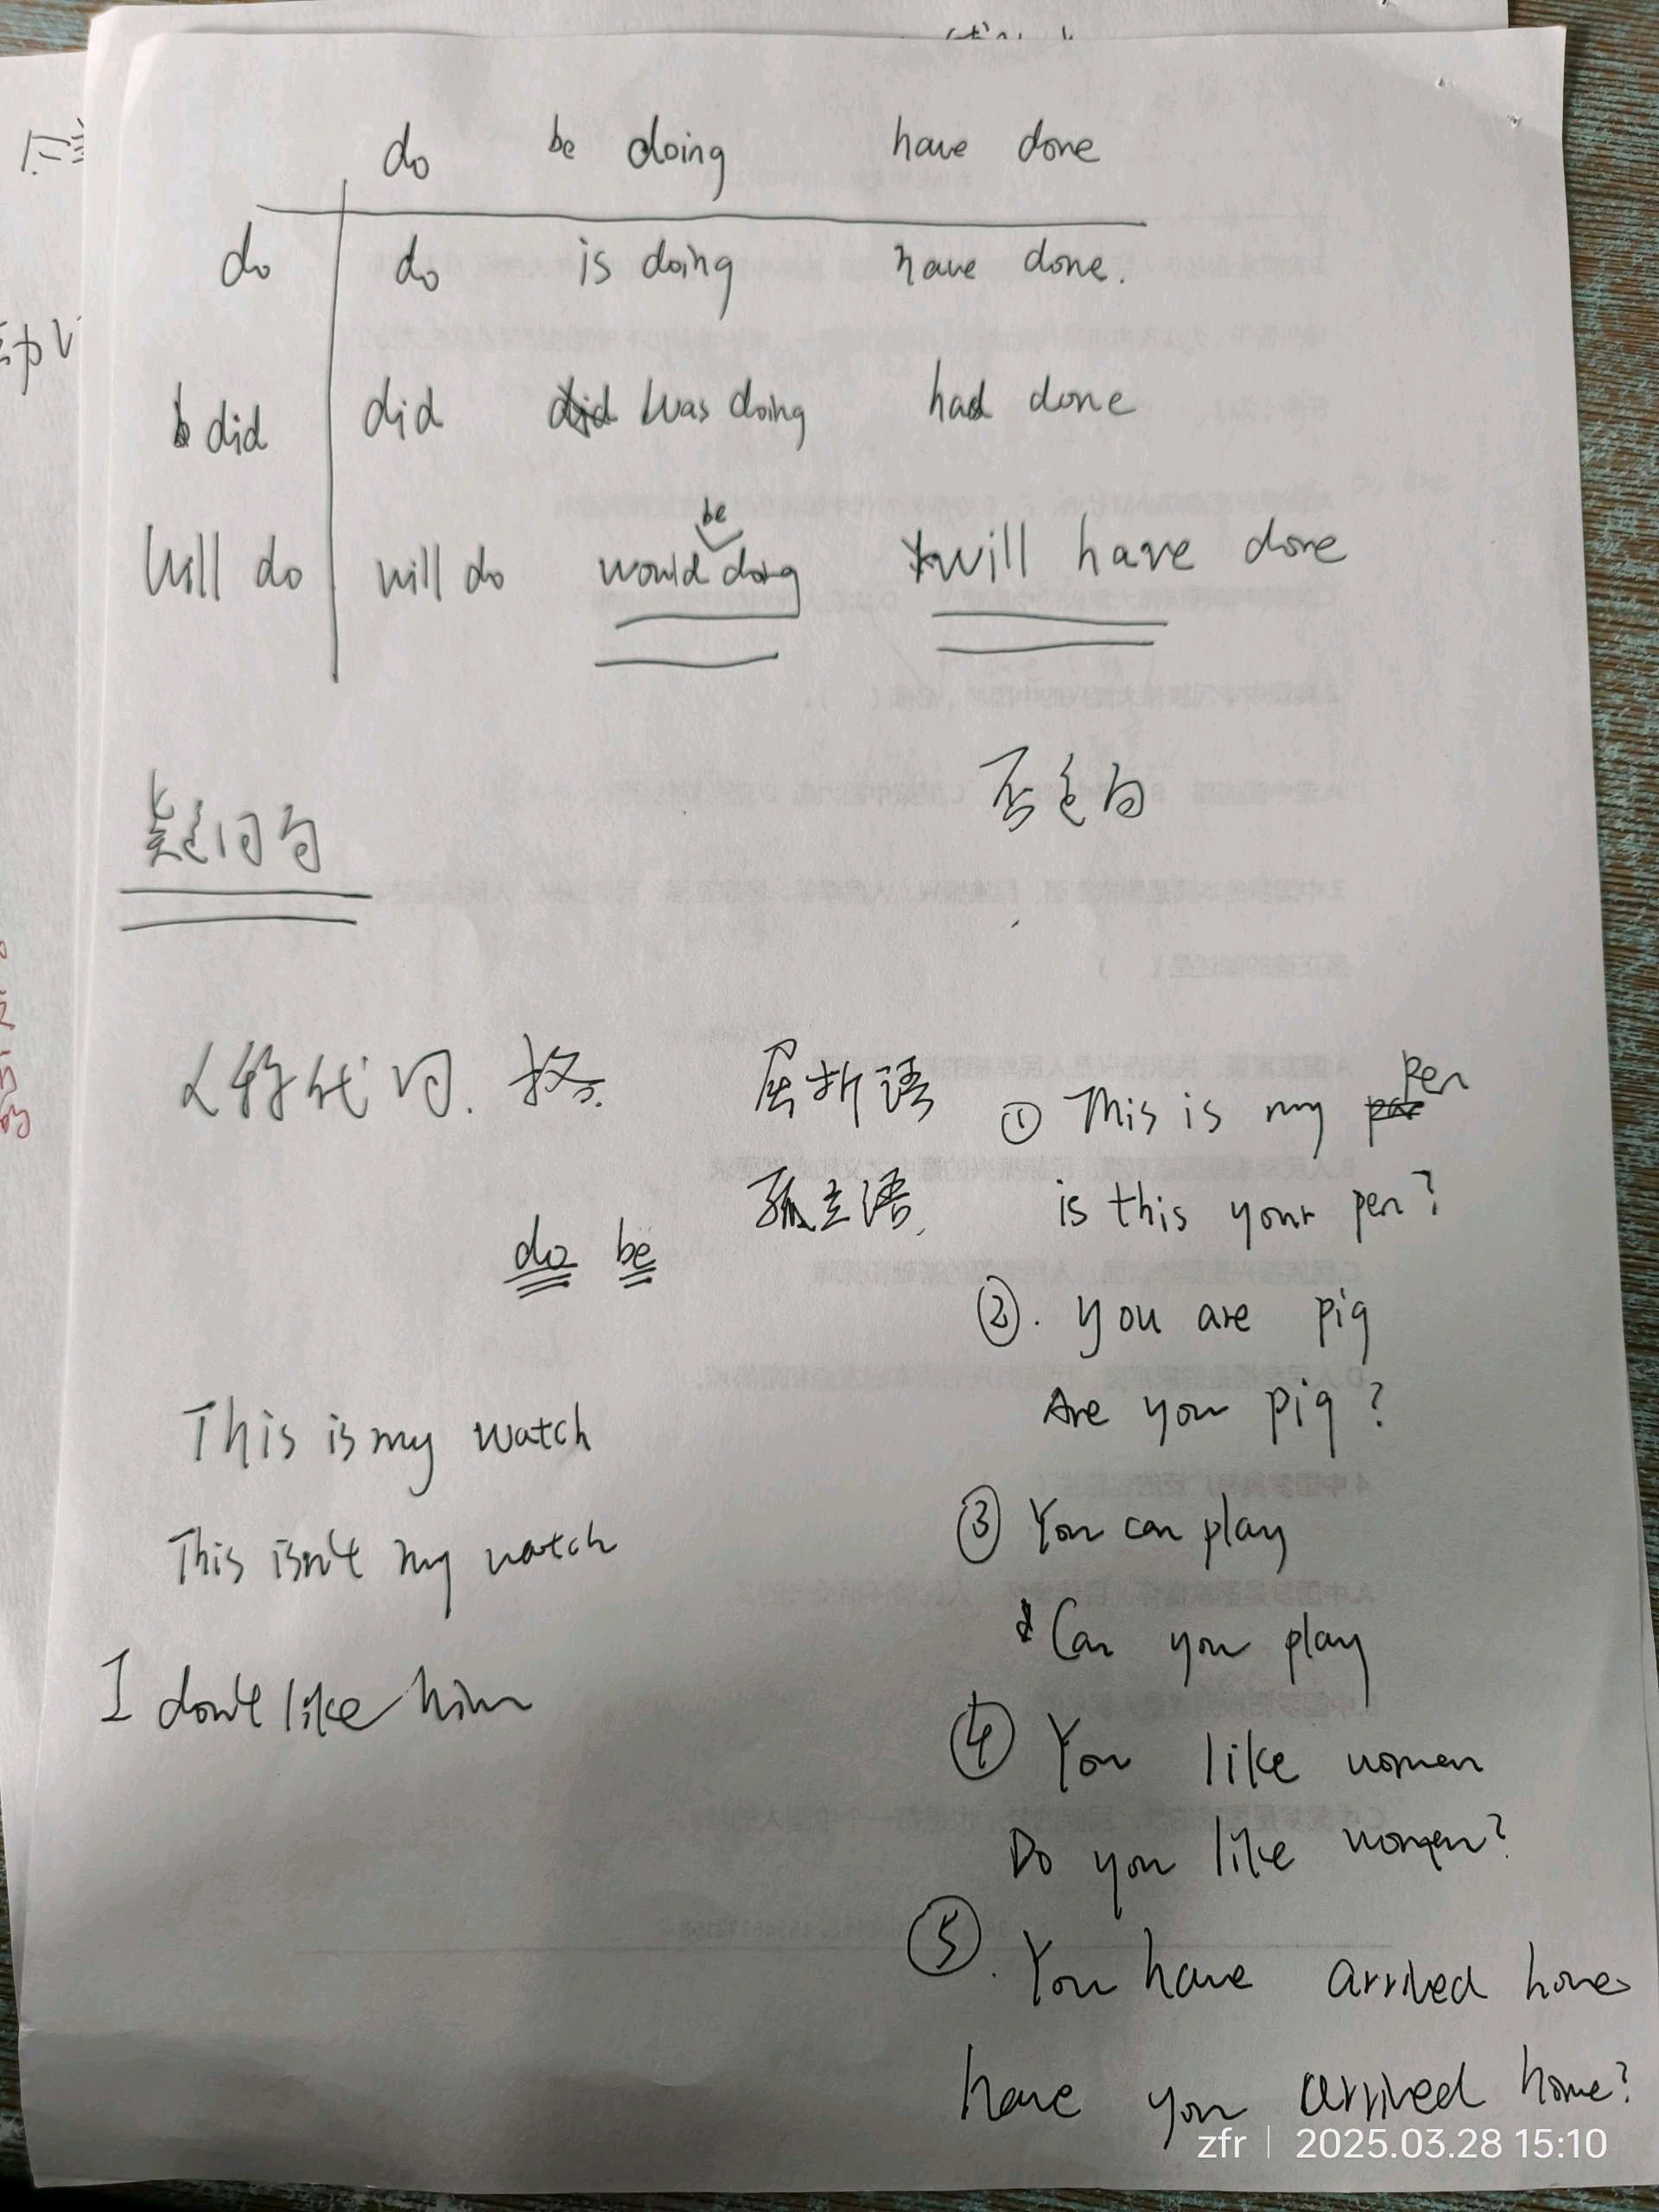 do be doing have done
do do is doing have done.
did did did was doing had done
will do will do would be doing will have done
否定句
疑问句
人称代词. 格.
屈折语
孤立语.
do be
This is my watch
This isn't my watch
I don't like him
① This is my pen
is this your pen?
②. you are pig
Are you pig?
③ You can play
Can you play
④ You like women
Do you like women?
⑤. You have arrived home
have you arrived home?
zfr | 2025.03.28 15:10